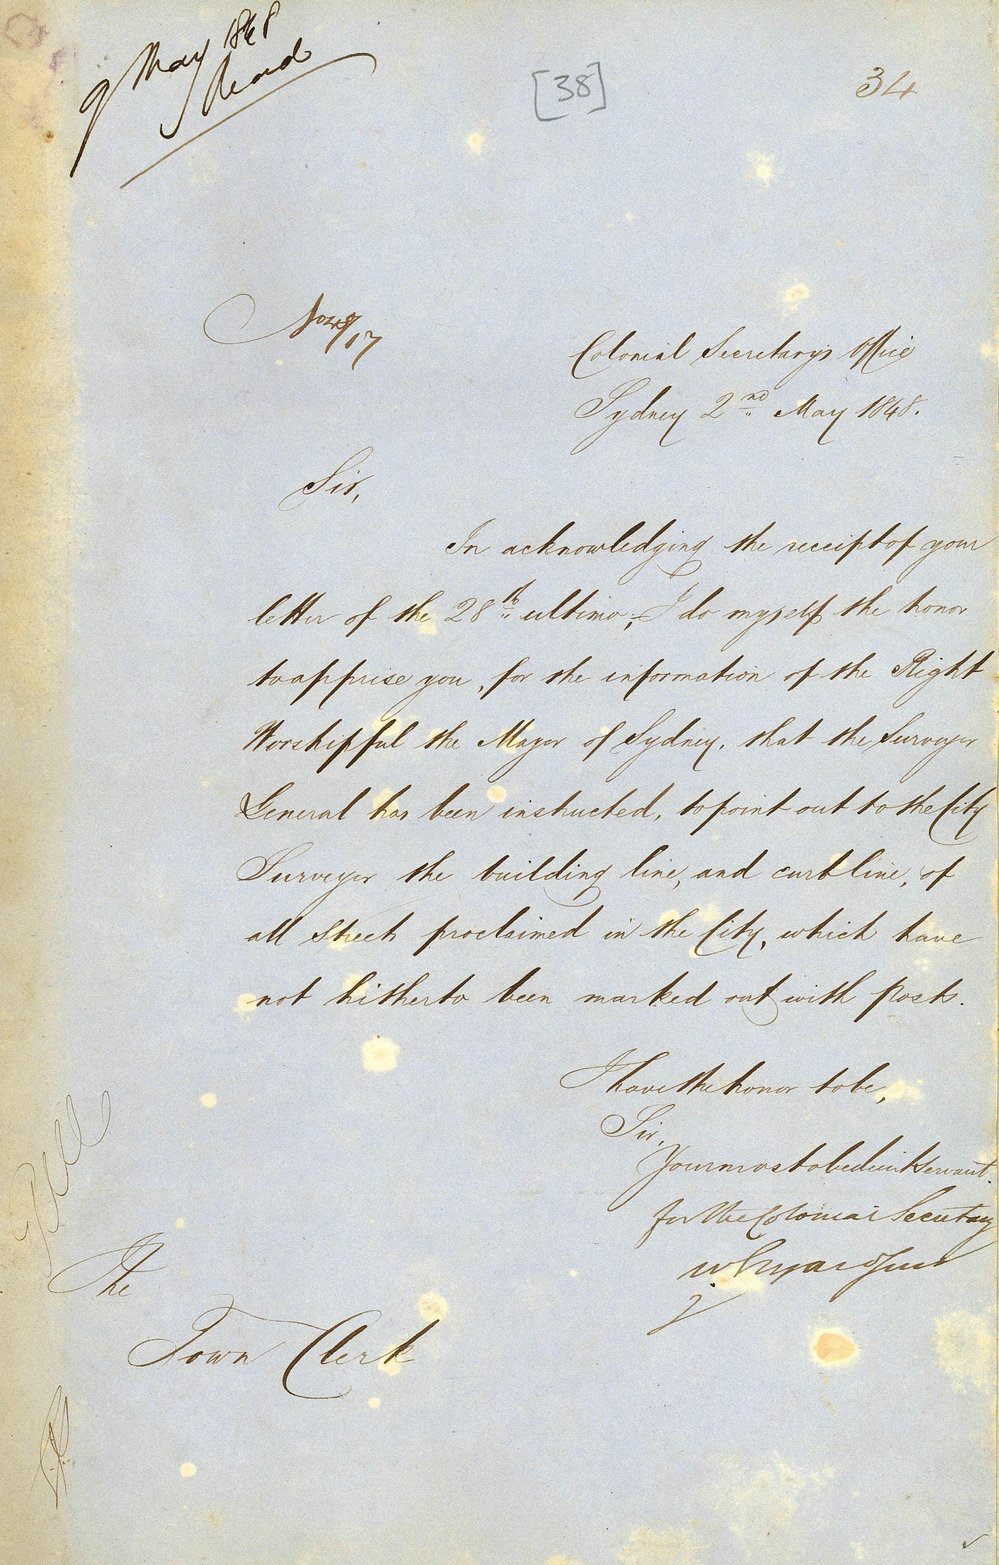 9 May 1848
Read
[38]
34
No 48/17
Colonial Secretary's Office
Sydney 2nd May 1848.
Sir,
In acknowledging the receipt of your
letter of the 28th ultimo, I do myself the honor
to apprise you, for the information of the Right
Worshipful the Mayor of Sydney, that the Surveyor
General has been instructed, to point out to the City
Surveyor the building line, and curb line, of
all Streets proclaimed in the City, which have
not hitherto been marked out with Posts.
I have the honor to be,
Sir,
Your most obedient Servant.
for the Colonial Secretary
W. Elyard Junr
The
Town Clerk